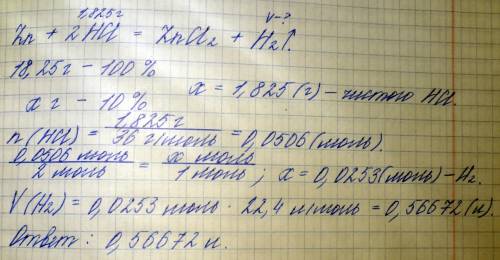 1,825г V-?
Zn + 2HCl = ZnCl₂ + H₂↑.
18,25г - 100 %
x г - 10% x = 1,825 (г) - чистого HCl.
n(HCl) = 1,825г / 36 г/моль = 0,0506 (моль).
0,0506 моль / 2 моль = x моль / 1 моль ; x = 0,0253 (моль) - H₂.
V(H₂) = 0,0253 моль · 22,4 л/моль = 0,56672 (л).
Ответ: 0,56672 л.